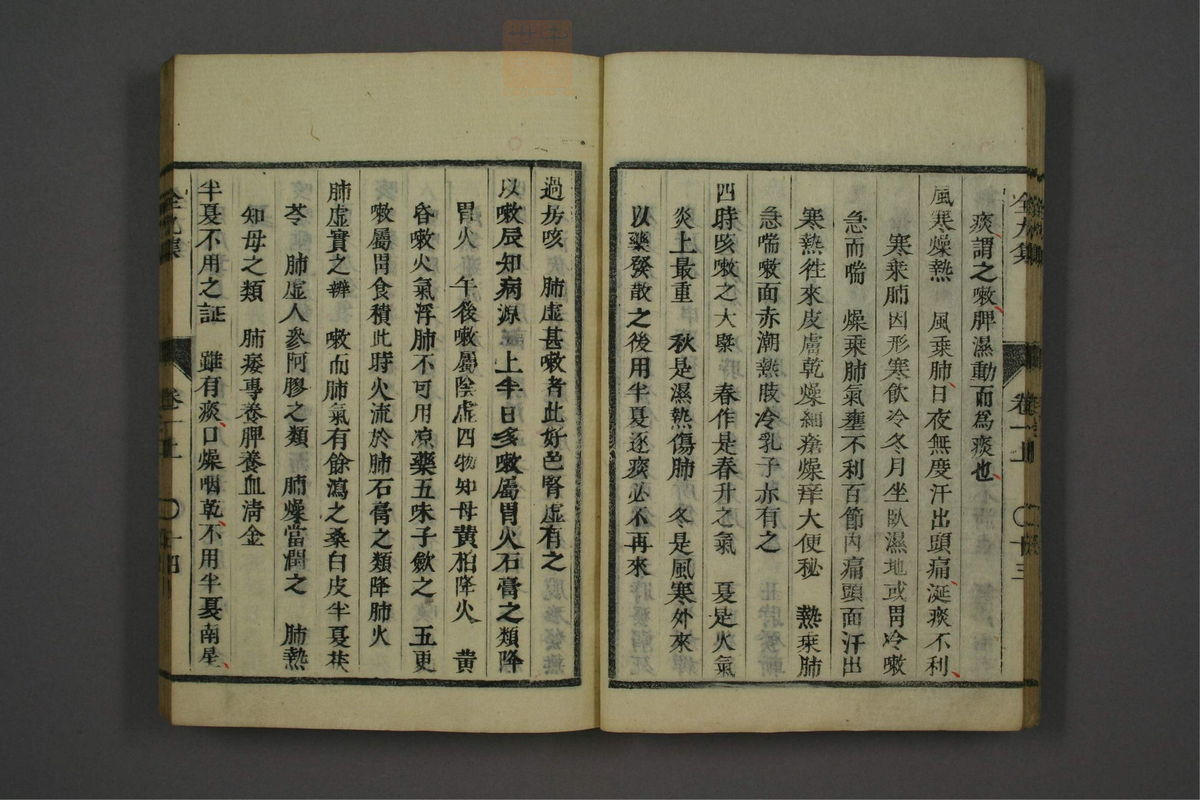 痰謂之嗽脾濕動而爲痰也
風寒燥熱　風乗肺日夜無度汗出頭痛涎痰不利
寒乗肺因形寒飲冷冬月坐臥濕地或胃冷嗽
急而喘　燥乗肺氣壅不利百節内痛頭面汗出
寒熱徃來皮膚乾燥細瘡燥痒大便秘　熱乗肺
急喘嗽面赤潮熱肢冷乳子亦有之
四時咳嗽之大槩　春作是春升之氣　夏是火氣
炎上最重　秋是濕熱傷肺　冬是風寒外來
以藥發散之後用半夏逐痰必不再來
全九集　卷一上　〇十三
過房咳　肺虚甚嗽者此好色腎虚有之
以嗽辰知病源　上半日多嗽屬胃火石膏之類降
胃火　午後嗽屬陰虚四物知母黄柏降火　黄
昏嗽火氣浮肺不可用凉藥五味子歛之　五更
嗽屬胃食積此時火流於肺石膏之類降肺火
肺虚實之辨　嗽而肺氣有餘瀉之桑白皮半夏茯
苓　肺虚人參阿膠之類　肺燥當潤之　肺熱
知母之類　肺痿專養脾養血清金
半夏不用之証　雖有痰口燥咽乾不用半夏南星
全九集　卷一上　〇十四